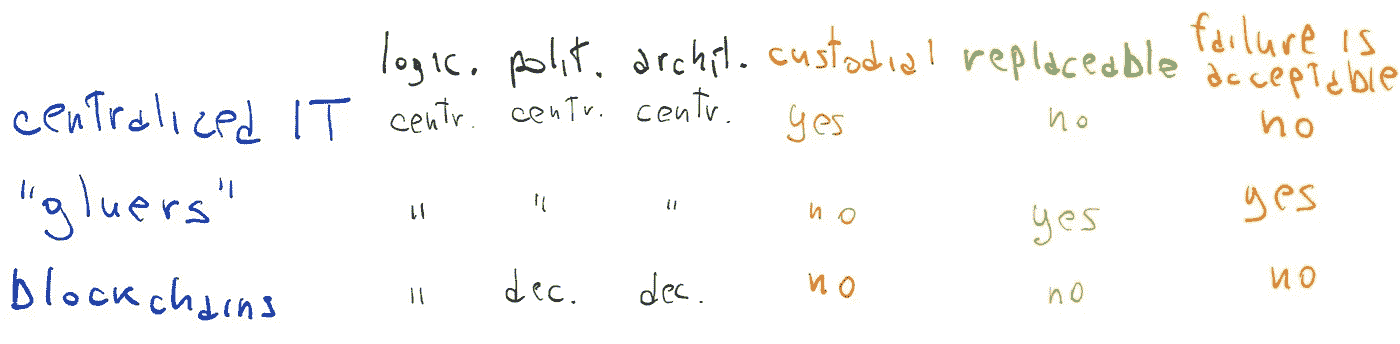 logic. polit. archit. custodial replaceable failure is acceptable
centralized IT centr. centr. centr. yes no no
"gluers" " " " no yes yes
blockchains " dec. dec. no no no